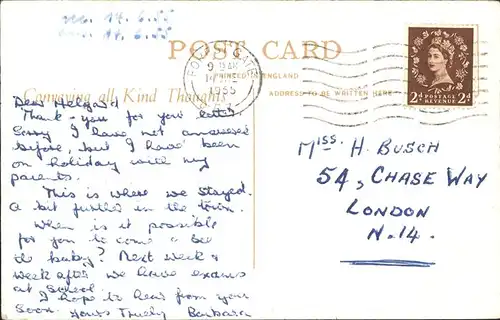 14.6.55
14.6.55
POST CARD
9 15 AM
1955
PRINTED IN ENGLAND
Conveying all Kind Thoughts
ADDRESS TO BE WRITTEN HERE
2d POSTAGE REVENUE 2d
Dear Helgard
Thank-you for your letter
Sorry I have not answered
before, but I have been
on holiday with my
parents.
This is where we stayed.
A bit further in the town.
When is it possible
for you to come & see
the baby? Next week &
week after we have exams
at School.
I hope to hear from you
Soon. Yours Truely Barbara
Miss. H. BUSCH
54, CHASE WAY
LONDON
N.14.